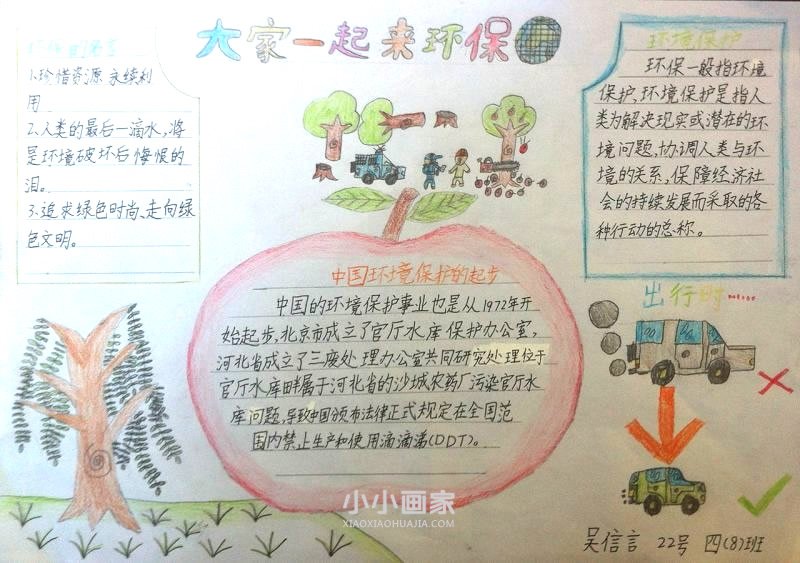 大家一起来环保
1.珍惜资源 永续利
用
2.人类的最后一滴水,将
是环境破坏后悔恨的
泪。
3.追求绿色时尚、走向绿
色文明。
环境保护
环保一般指环境
保护,环境保护是指人
类为解决现实或潜在的环
境问题,协调人类与环
境的关系,保障经济社
会的持续发展而采取的各
种行动的总称。
中国环境保护的起步
中国的环境保护事业也是从1972年开
始起步,北京市成立了官厅水库保护办公室,
河北省成立了三废处理办公室共同研究处理位于
官厅水库畔属于河北省的沙城农药厂污染官厅水
库问题,导致中国颁布法律正式规定在全国范
围内禁止生产和使用滴滴涕(DDT)。
出行时......
小小画家
XIAOXIAOHUAJIA.COM
吴信言 22号 四(8)班